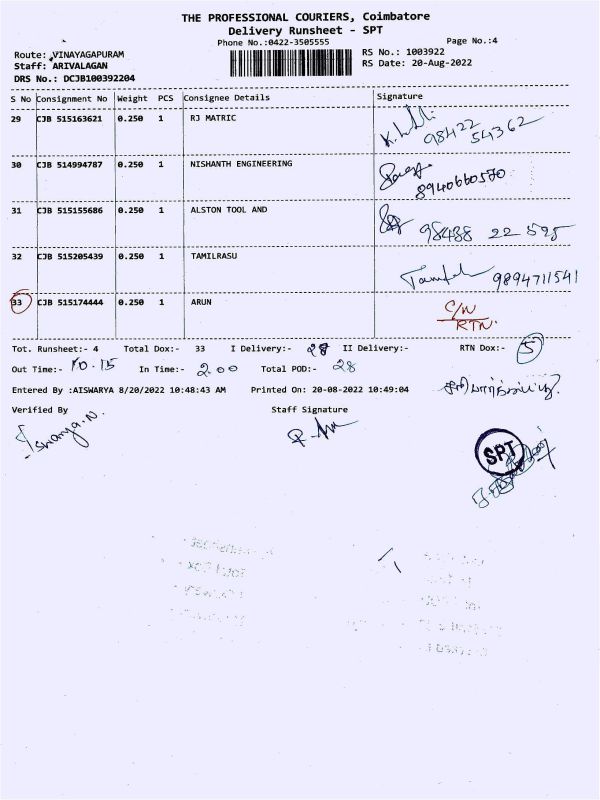 THE PROFESSIONAL COURIERS, Coimbatore
Delivery Runsheet - SPT
Phone No.:0422-3505555 Page No.:4
Route: VINAYAGAPURAM RS No.: 1003922
Staff: ARIVALAGAN RS Date: 20-Aug-2022
DRS No.: DCJB100392204
S No Consignment No Weight PCS Consignee Details Signature
29 CJB 515163621 0.250 1 RJ MATRIC
98422 54362
30 CJB 514994787 0.250 1 NISHANTH ENGINEERING
8940660570
31 CJB 515155686 0.250 1 ALSTON TOOL AND
98488 22 595
32 CJB 515205439 0.250 1 TAMILRASU
9894711541
33 CJB 515174444 0.250 1 ARUN C/N
RTN.
Tot. Runsheet:- 4 Total Dox:- 33 I Delivery:- 28 II Delivery:- RTN Dox:- 5
Out Time:- 10.15 In Time:- 2.00 Total POD:- 28
Entered By :AISWARYA 8/20/2022 10:48:43 AM Printed On: 20-08-2022 10:49:04
Verified By Staff Signature
SPT